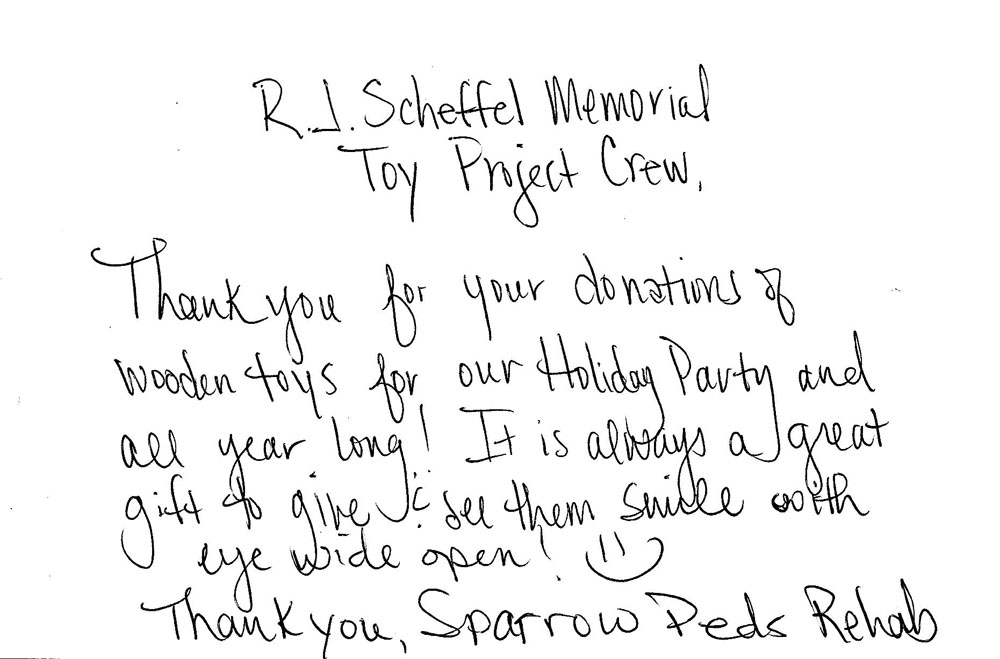 R.J. Scheffel Memorial
Toy Project Crew,
Thank you for your donations of
wooden toys for our Holiday Party and
all year long! It is always a great
gift to give & see them smile with
eye wide open!
Thank you, Sparrow Peds Rehab